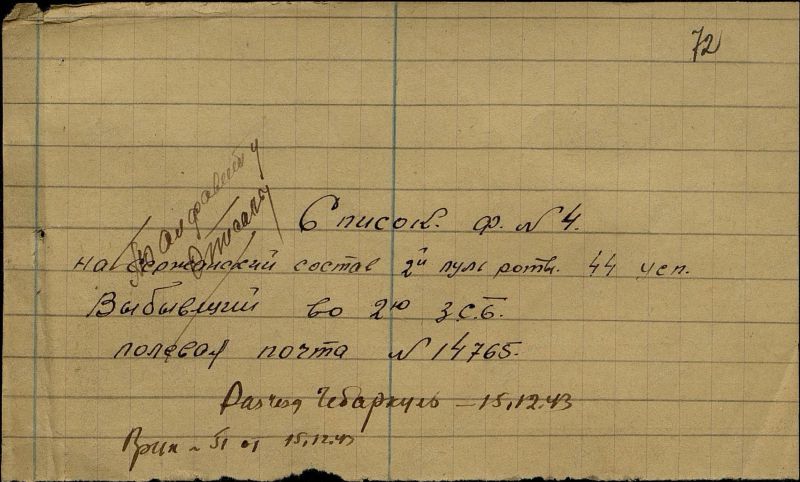 72
По алфавиту
Список. ф. № 4.
на сержанский состав 2й пуль роты. 44 усп.
Выбывший во 2ю З.С.Б.
полевая почта № 14765.
Разъезд Чебаркуль – 15.12.43
15.12.43